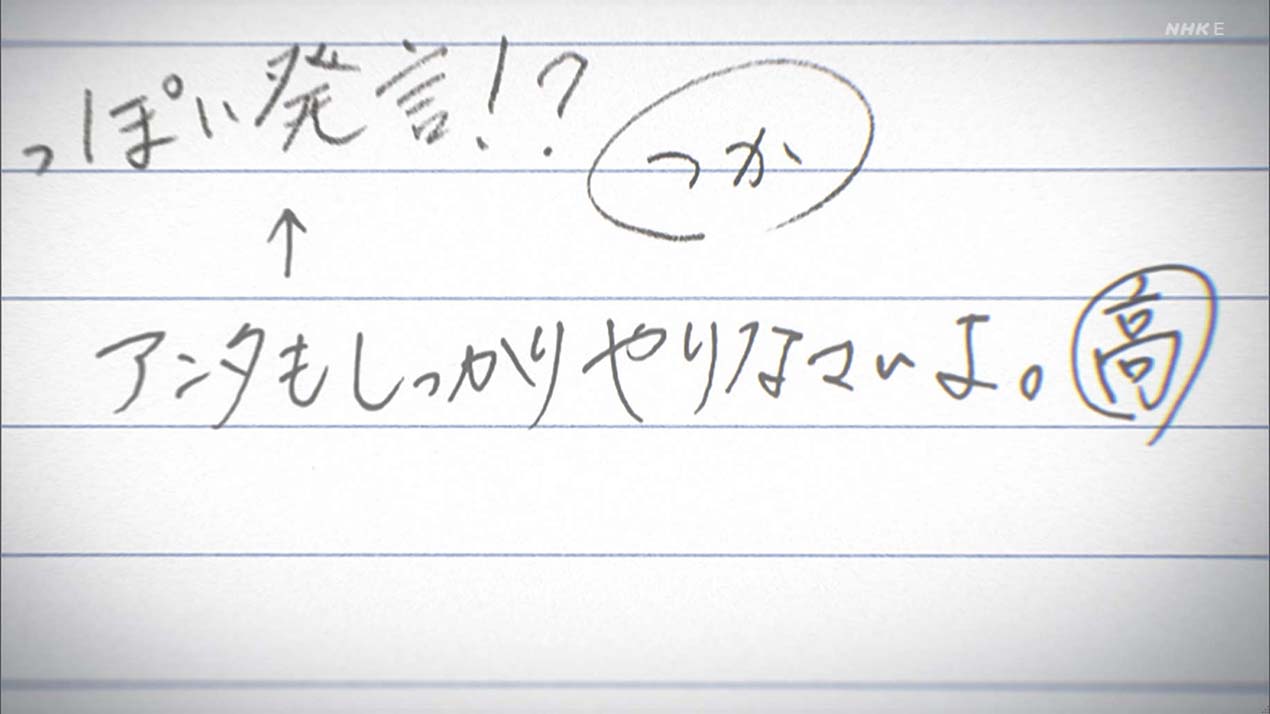 NHK E
っぽい発言!? つか
↑
アンタもしっかりやりなさいよ。高